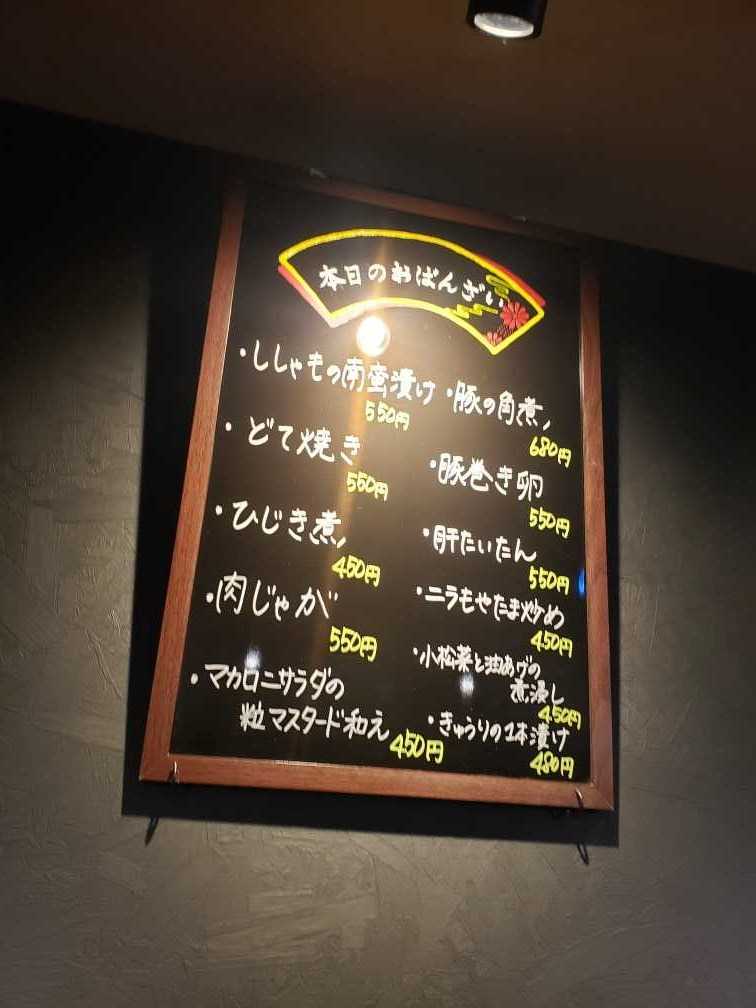 本日のおばんざい
・ししゃもの南蛮漬け
550円
・どて焼き
550円
・ひじき煮
450円
・肉じゃが
550円
・マカロニサラダの
粒マスタード和え
450円
・豚の角煮
680円
・豚巻き卵
550円
・肝たいたん
550円
・ニラもやたま炒め
450円
・小松菜と油あげの
煮浸し
450円
・きゅうりの1本漬け
480円